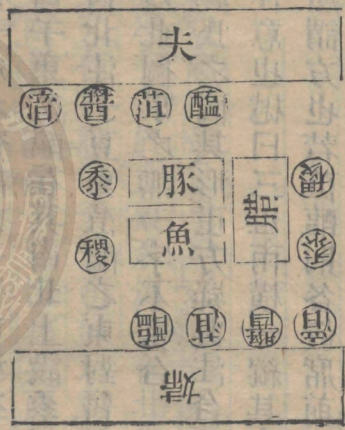 夫
湆 醬 菹 醢
黍 豚 腊 稷
稷 魚 黍
醢 菹 醬 湆
婦